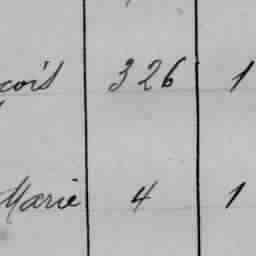 çois 326 1
Marie 4 1